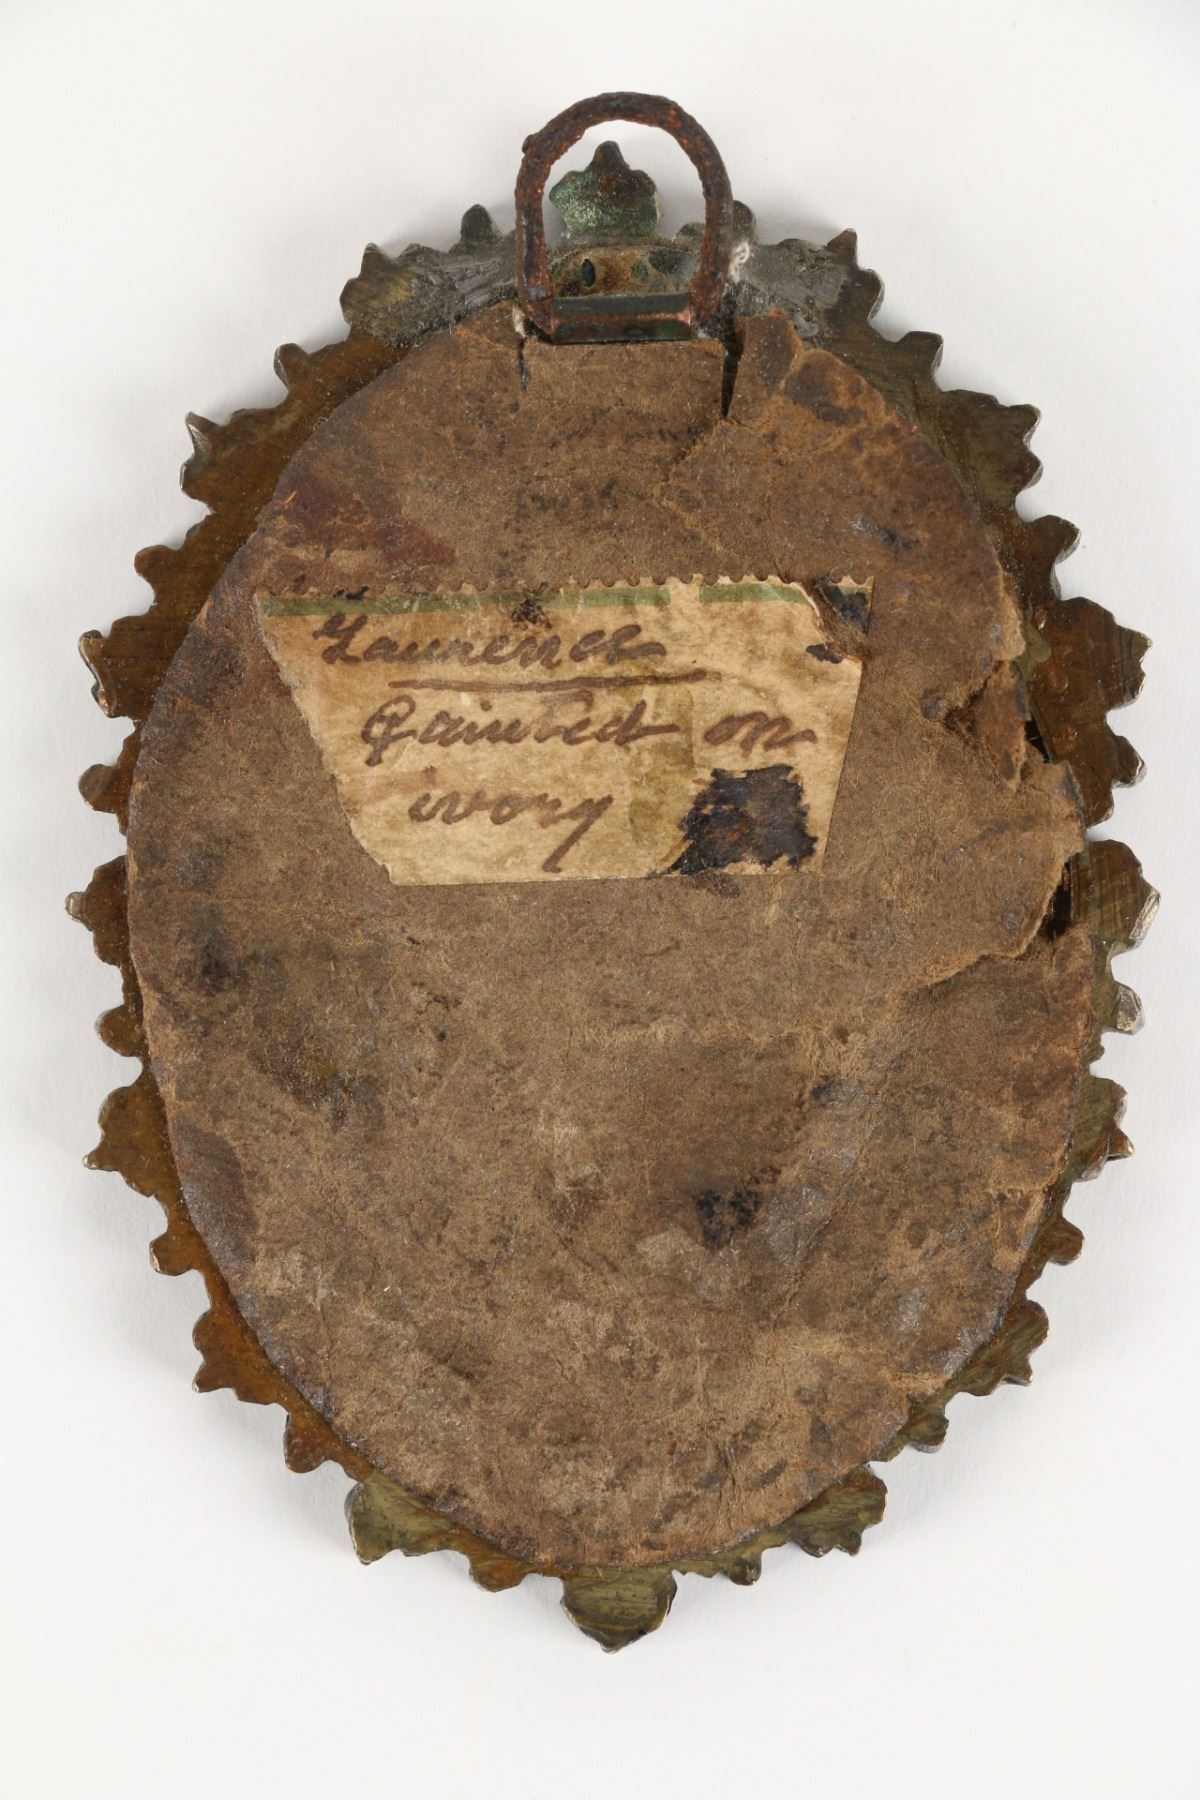 Laurence
Painted on
ivory